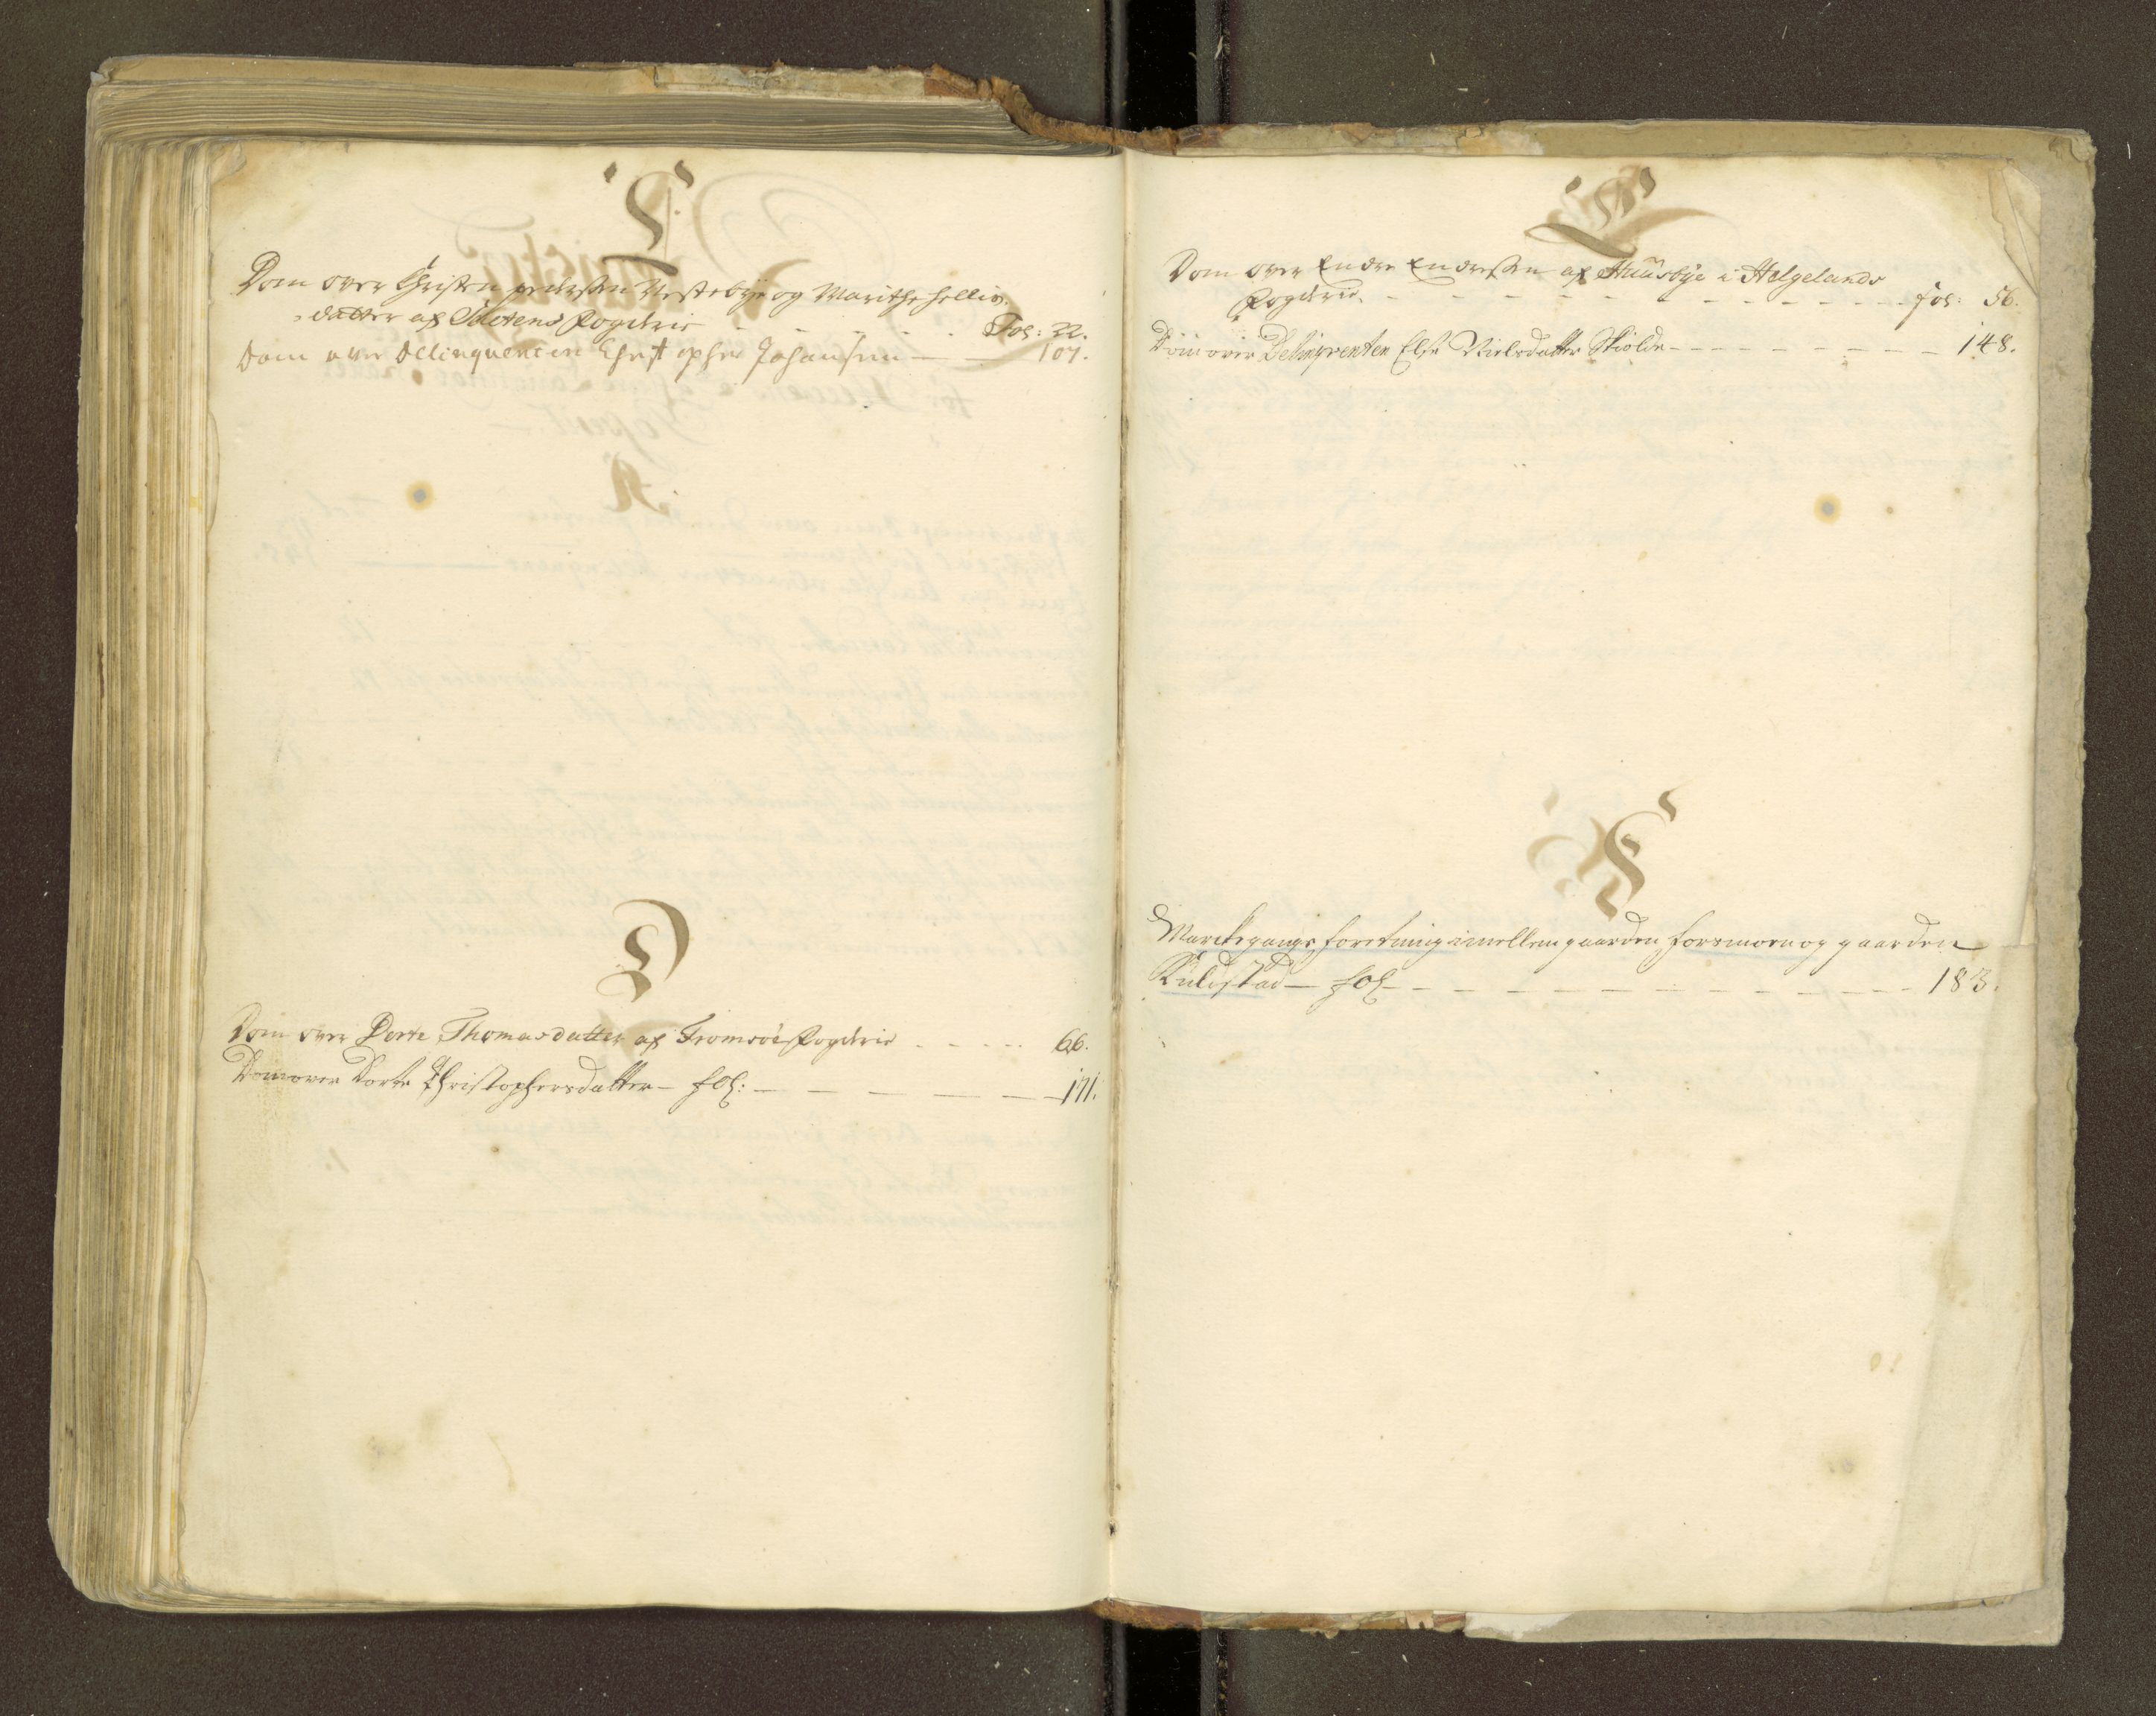 C
Dom over Christen Pedersen Vestebÿe og Marithe Hellis-
datter af Saltens Fogderie Fol: 22.
Dom over Delinquenten Christopher Johansen 107.
D
Dom over Dorte Thomasdatter af Tromsöe Fogderie 66.
Dom over Dorte Christophersdatter - fol: 171.
E
Dom over Endre Endersen af Huusbye i Helgelands
Fogderie. fol: 56.
Dom over Delinqventen Else Nielsdatter Skiolde 148.
F
Marckegangs forretning imellem gaarden Forsmoen og gaarden
Kulistad - fol 183.